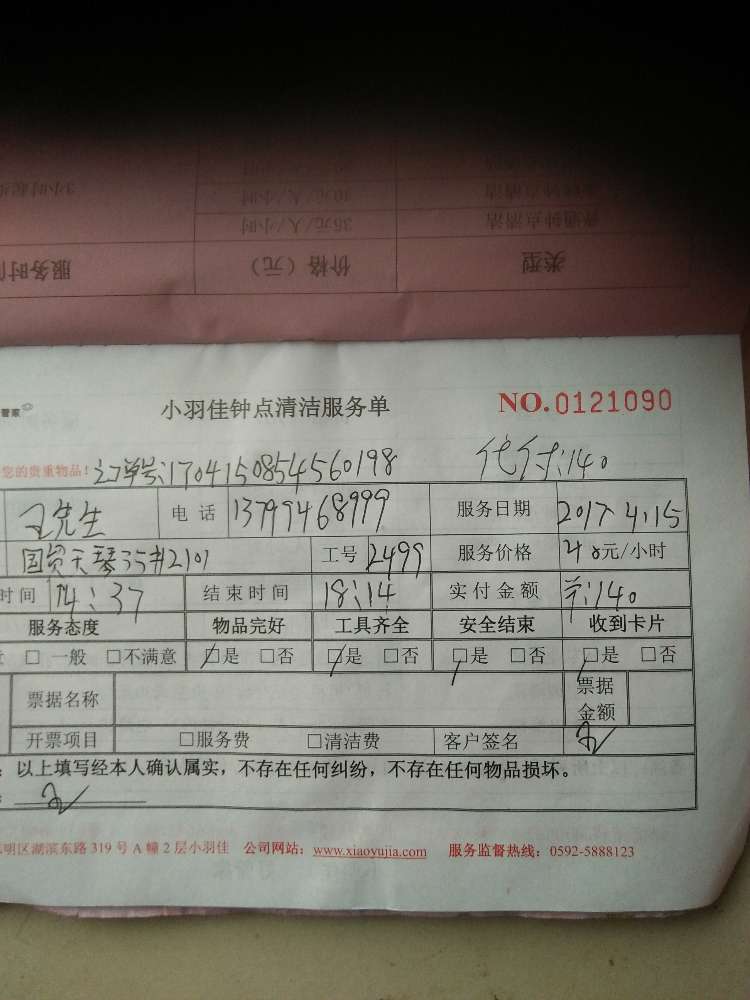 普通钟点清洁 36元/人/小时
类型 价格（元） 服务时间
管家
小羽佳钟点清洁服务单 NO.0121090
您的贵重物品！订单号:170415085456019８ 代付:140
王先生 电话 13799468999 服务日期 2017.4.15
国贸天琴35#2101 工号 2499 服务价格 40元/小时
时间 14:37 结束时间 18:14 实付金额 140
服务态度 物品完好 工具齐全 安全结束 收到卡片
□ 一般 □不满意 □是 □否 □是 □否 □是 □否 □是 □否
票据名称 票据金额
开票项目 □服务费 □清洁费 客户签名
以上填写经本人确认属实，不存在任何纠纷，不存在任何物品损坏。
明区湖滨东路 319 号 A 幢 2 层小羽佳 公司网站：www.xiaoyujia.com 服务监督热线：0592-5888123